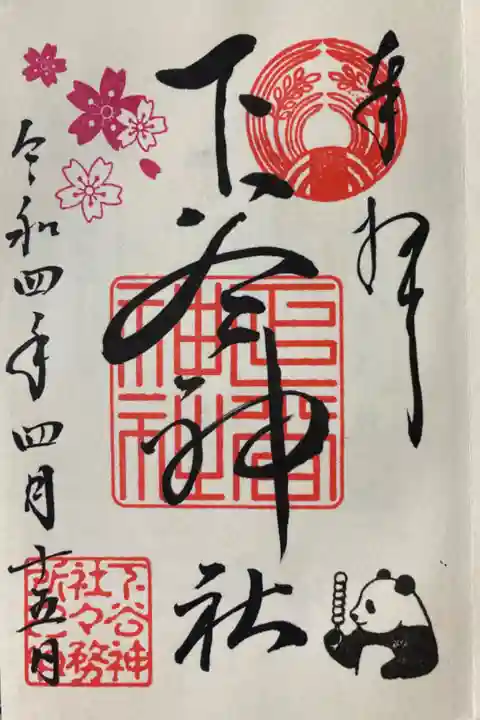 奉拝
下谷神社
下谷神社
令和四年四月十五日
下谷神
社々務
所之印